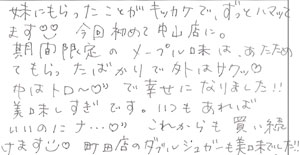 妹にもらったことがキッカケで、ずっとハマッて
ます♡ 今回初めて中山店に。
期間限定のメープル味は、あたため
てもらったばかりで外はサクッ♡
中はトロ〜♡で幸せになりました!!
美味しすぎです。いつもあれば
いいのにナ…♡ これからも買い続
けます♡ 町田店のダブルシュガーも美味でした!!